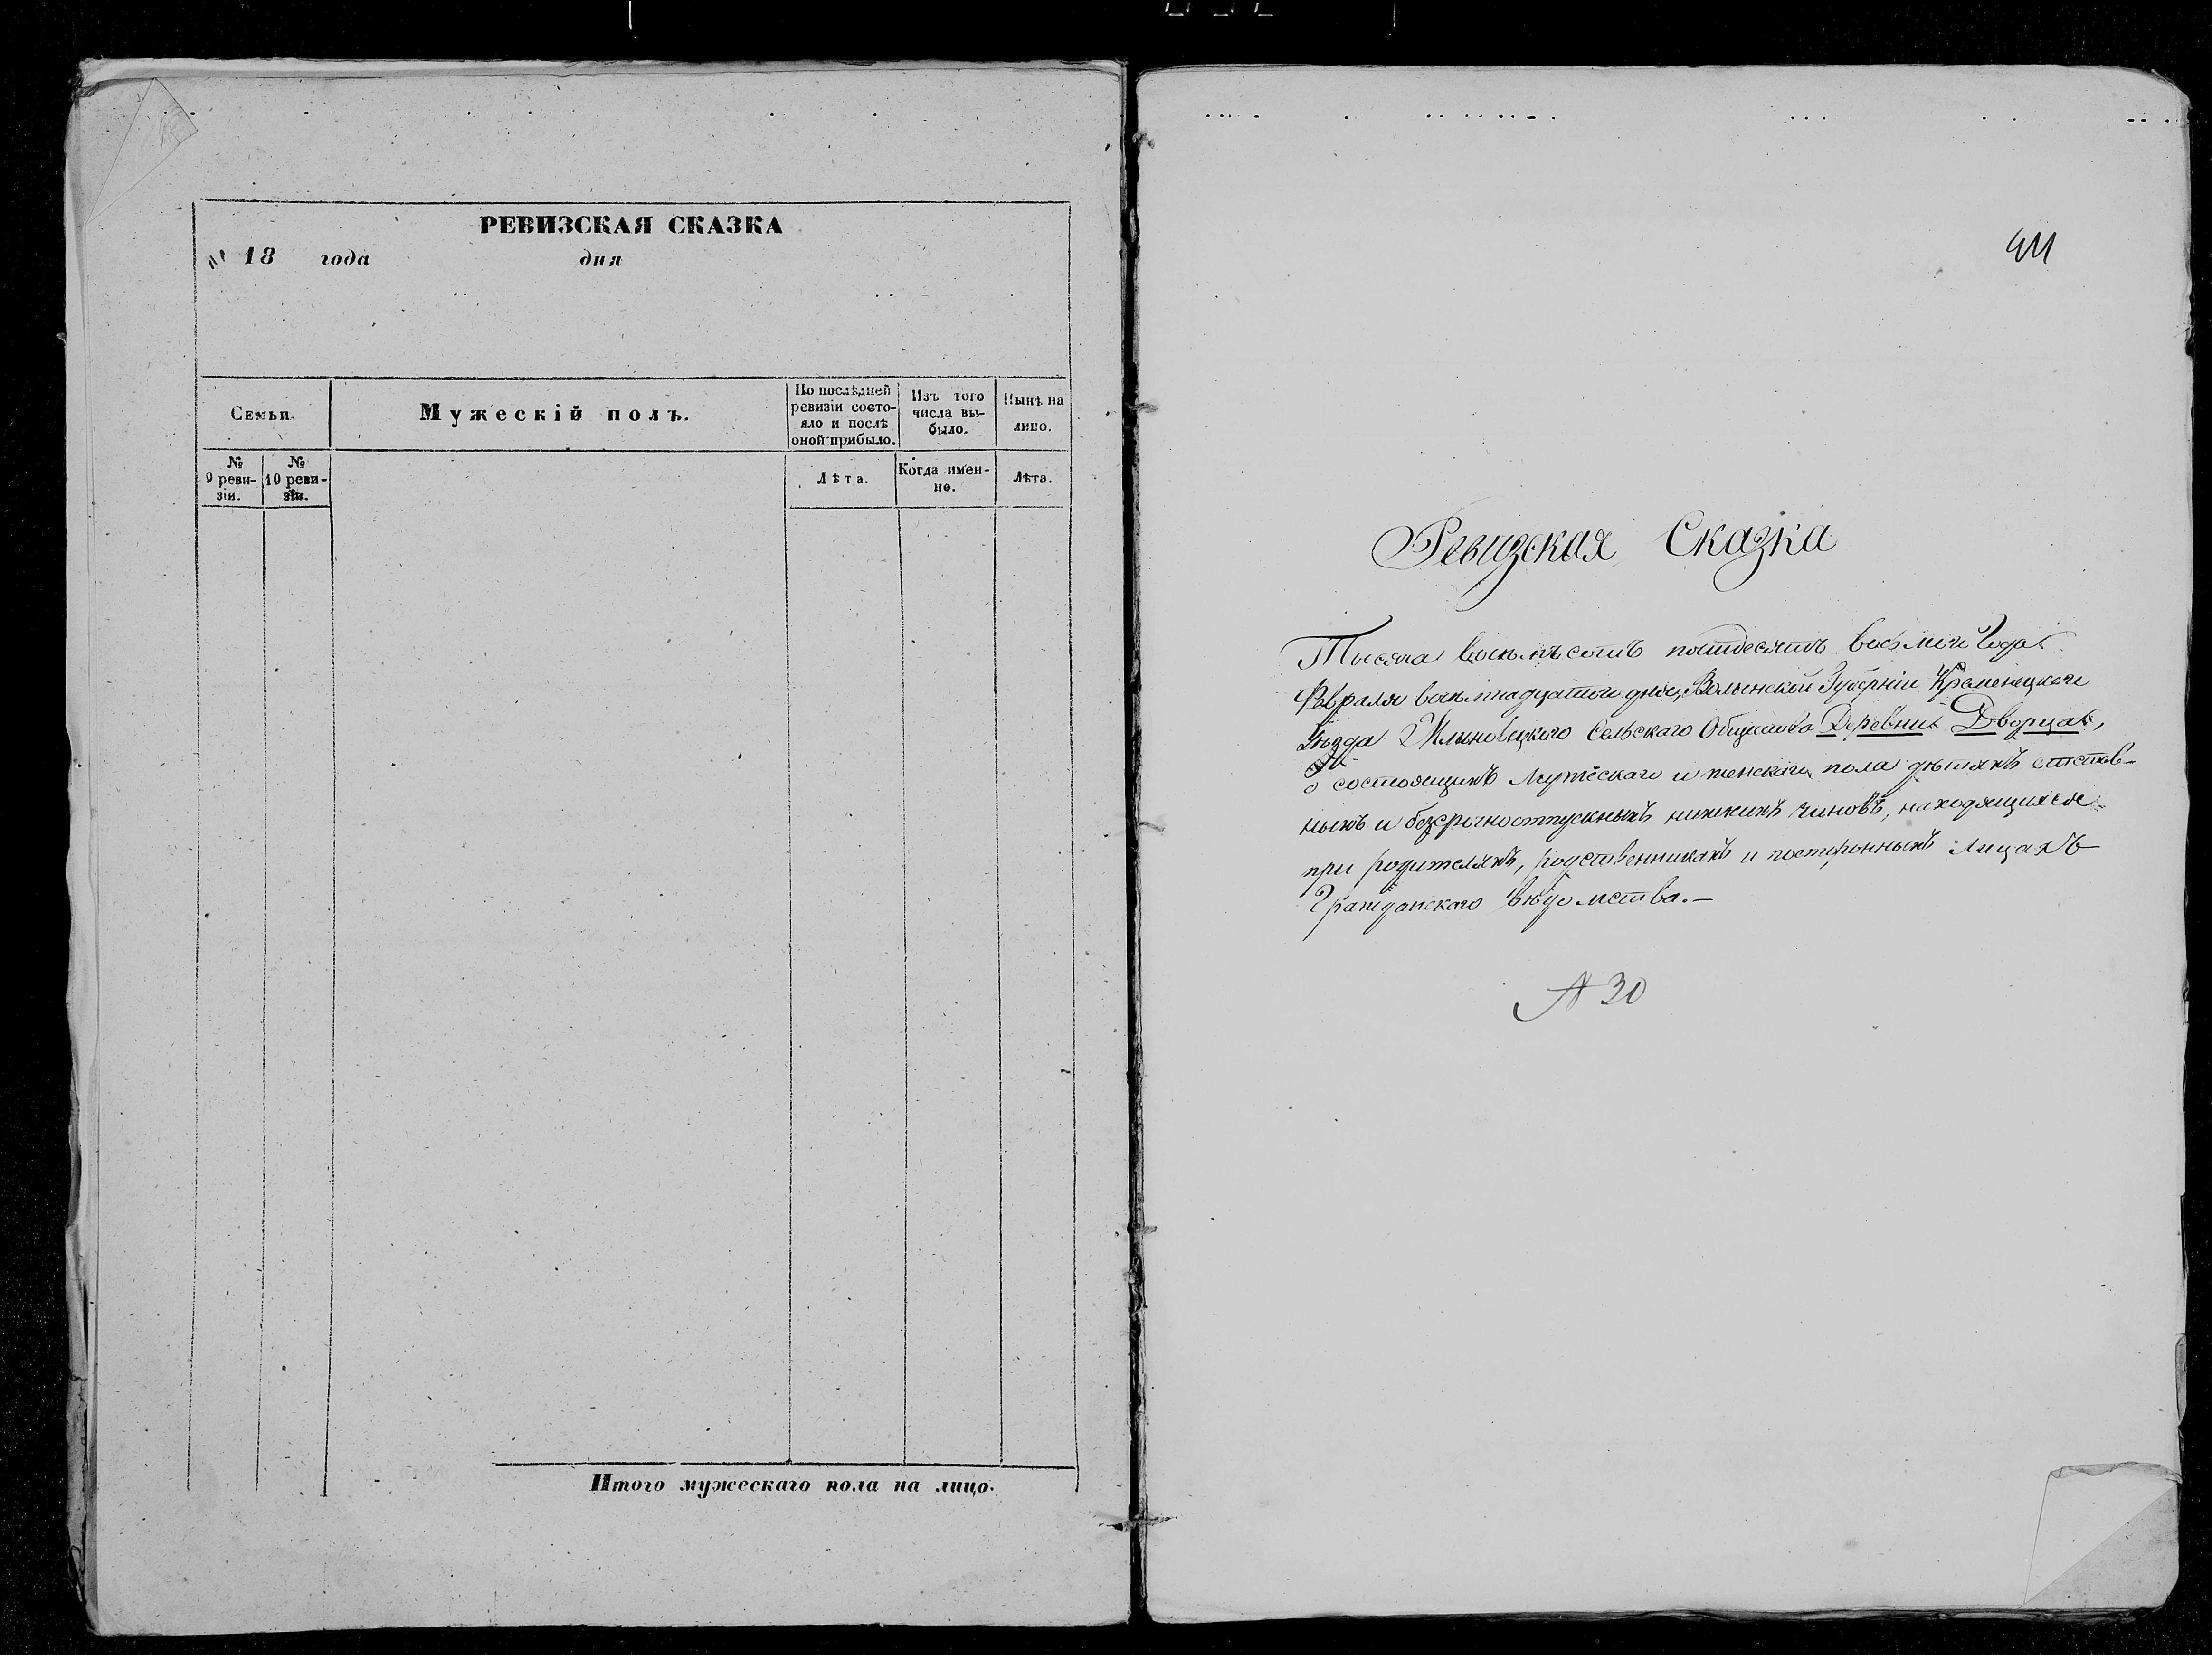 РЕВИЗСКАЯ СКАЗКА
18 года дня
Семьи.
Мужескій полъ.
По послѣдней ревизіи состо-
яло и послѣ оной прибыло.
Изъ того числа вы-
было.
Нынѣ на лицо.
№ 9 реви-
зіи.
№ 10 реви-
зіи.
Лѣта.
Когда имен-
но.
Лѣта.
Итого мужескаго пола на лицо.
Ревизская Сказка
Тысяча восемьсотъ пятдесятъ восьмой Года
Февраля восемнадцатой дня, Волынской Губерніи Кременецкого
Уѣзда Сельскаго Общества Деревни Дворца,
о состоящихъ Мужескаго и женскаго пола дѣтяхъ отстав-
ныхъ и безсрочноотпускныхъ нижнихъ чиновъ, находящихся
при родителяхъ, родственникахъ и постороннихъ лицахъ
Гражданскаго вѣдомства.—
№ 30